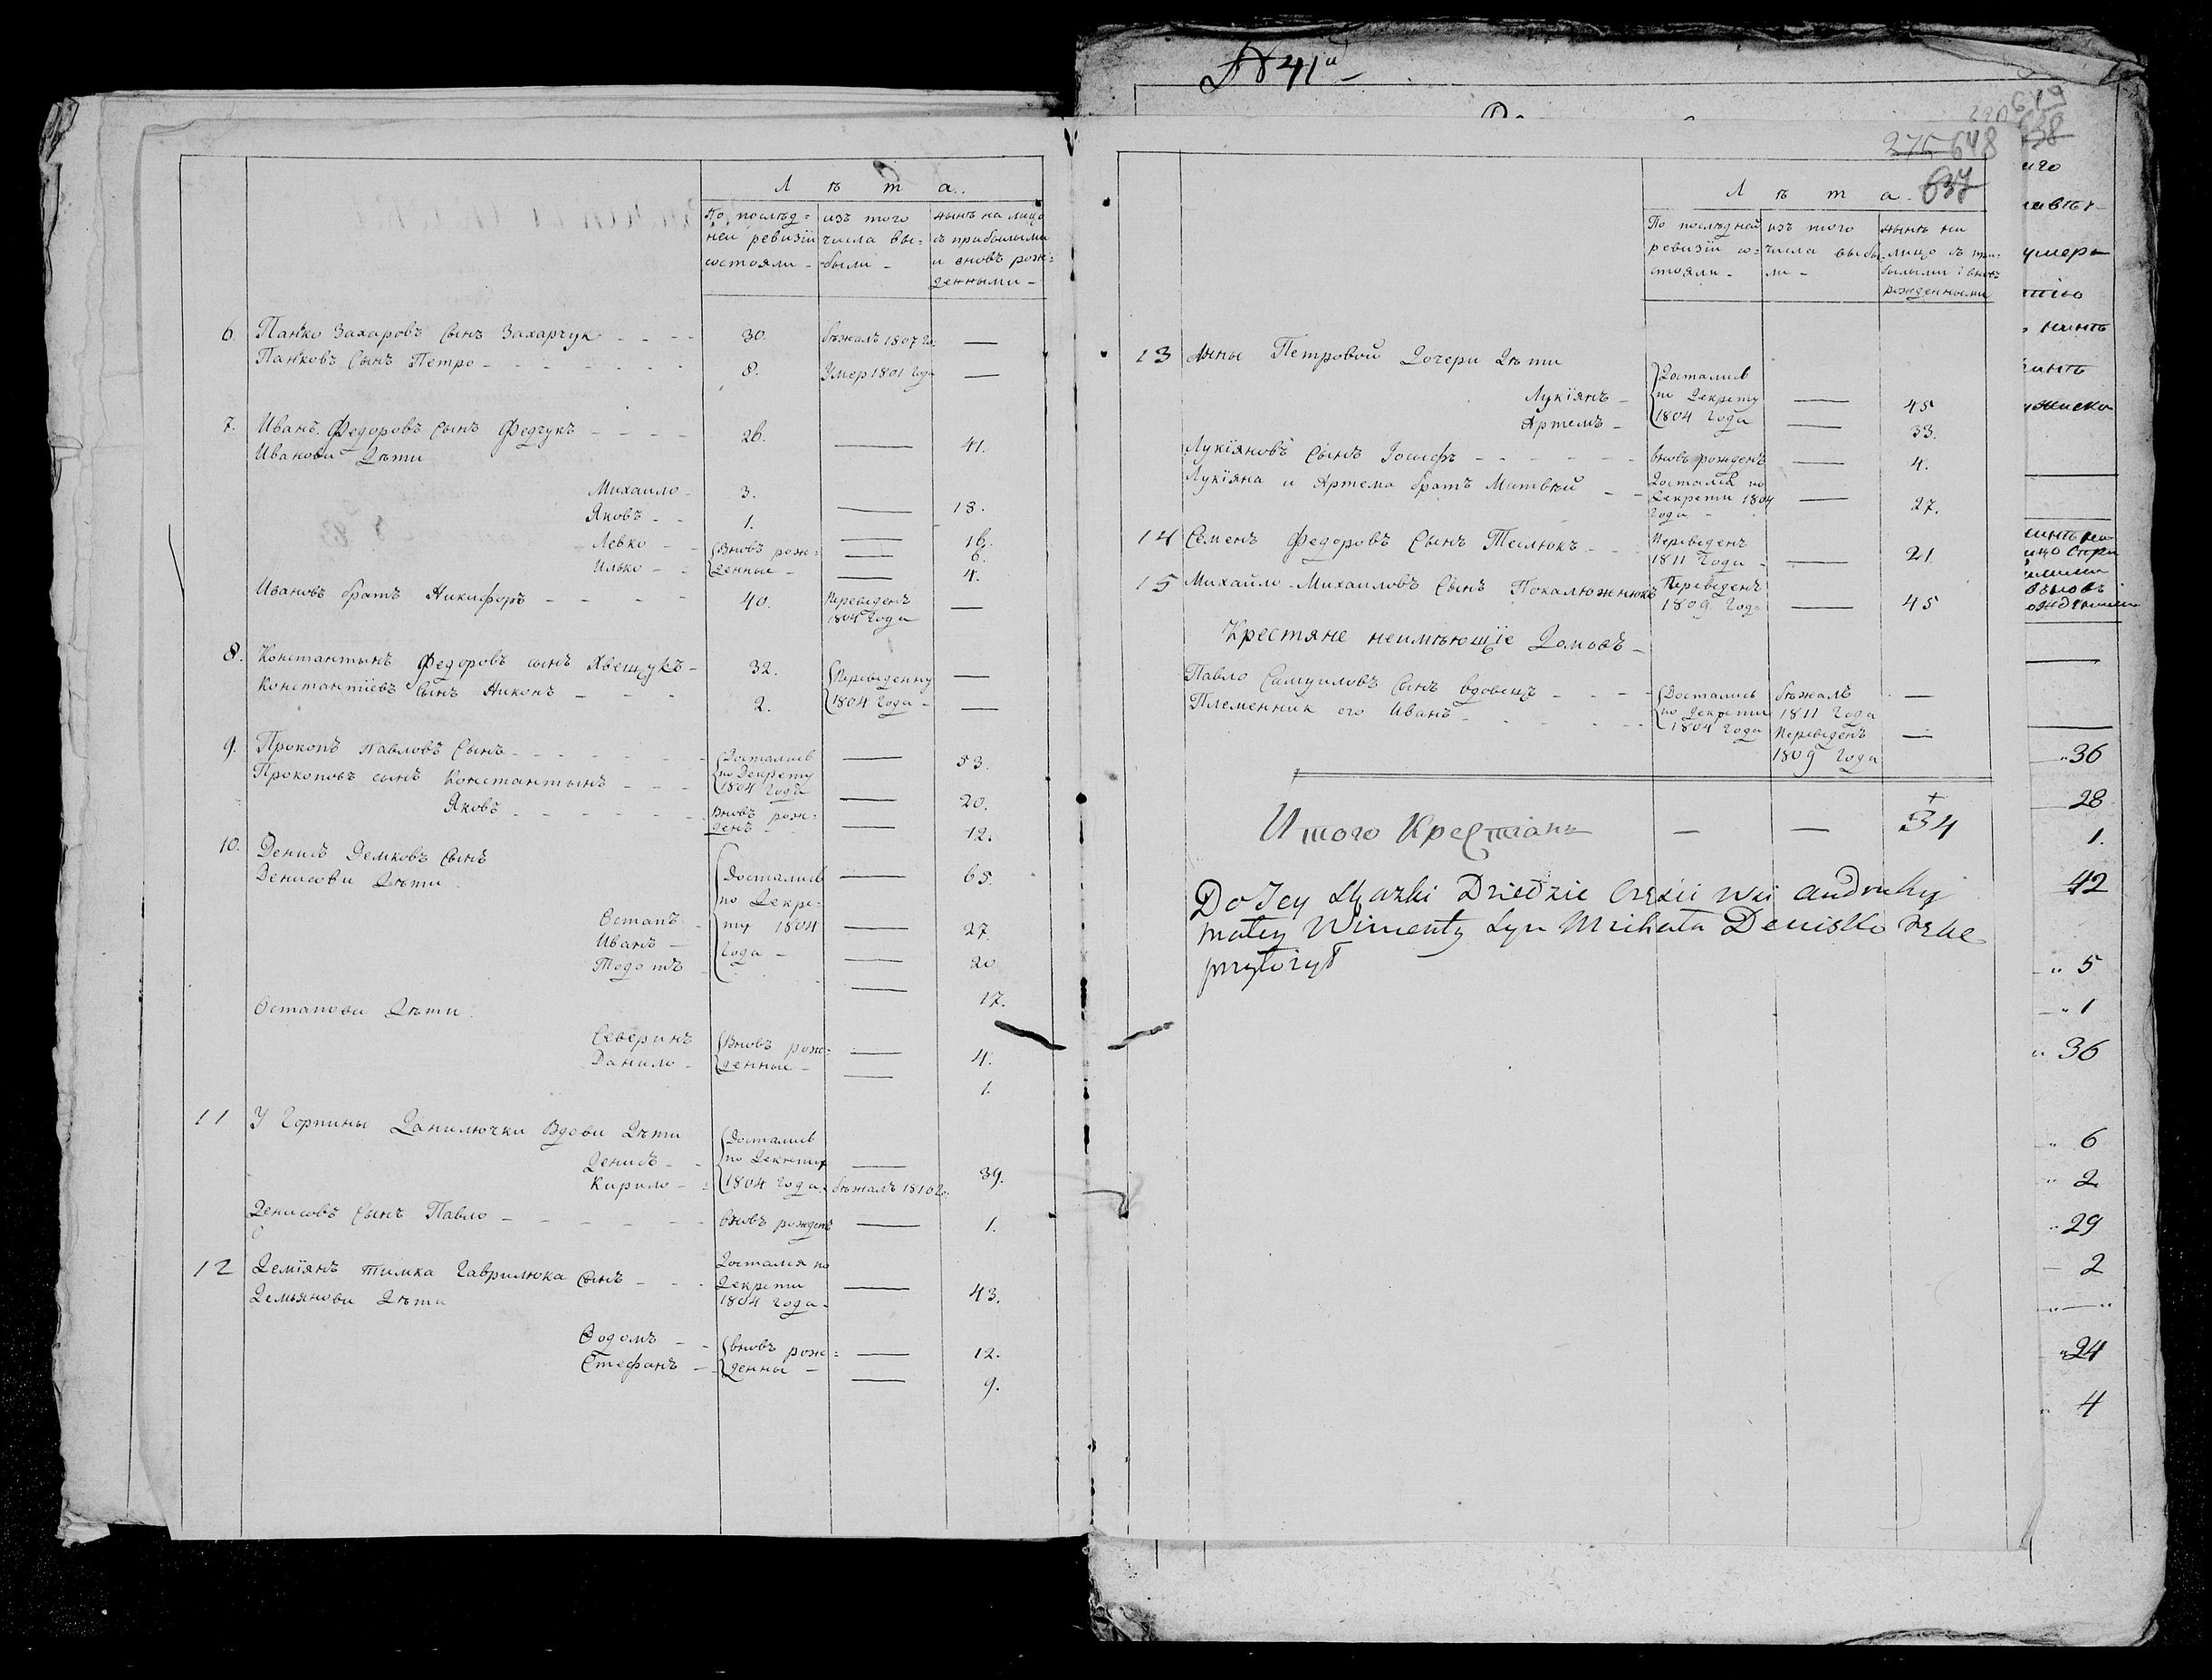 Лѣта
По послѣд= ней ревизіи состояли -
изъ того числа вы= были -
нынѣ на лицо съ прибылыми и вновь рож= денными -
6. Панько Захаровъ Сынъ Захарчук 30. бѣжалъ 1807 го. —
Паньковъ Сынъ Петро 8. Умер 1801 года —
7. Иванъ Федоровъ Сынъ Федчукъ 26. — 41.
Иванови Дѣти
Михаило 3. — 18.
Яковъ 1. — 16.
Левко {Вновь рож= — 6.
Илько {денные — 4.
Ивановъ братъ Никифоръ 40. Переведенъ 1804 Года —
8. Константынъ Федоровъ сынъ Явещукъ 32. {Переведенны —
Константіевъ Сынъ Никонъ 2. {1804 Года —
9. Прокопъ Павловъ Сынъ {Достались по Декрету — 53.
Прокоповъ сынъ Константынъ {1804 Года — 20.
Яковъ Вновь рож= денъ — 12.
10. Денисъ Демковъ Сынъ {Достались — 65.
Денисови Дѣти по Декре=
Остапъ ту 1804 — 27.
Иванъ Года — 20
Тодотъ — 17.
Остапови Дѣти
Северинъ {Вновь рож= — 4.
Данило {денные — 1.
11 У Горпины Данилючки Вдови Дѣти {Достались
Денисъ по Декрету — 39.
Кирило {1804 Года бѣжалъ 1810 го.
Денисовъ Сынъ Павло вновь рожденъ — 1.
12 Деміянъ Тимка Гаврилюка Сынъ Достался по Декрети 1804 Года — 43.
Демьянови Дѣти
Федомъ {вновь рож= — 12.
Стефанъ {денны — 9.
N 41
619
638
275 648
637
Лѣта
По послѣдней ревизіи со= стояли -
изъ того числа выбы= ли -
нынѣ на лицо съ при= былыми і вновь рожденными
13 Анны Петровой Дочери Дѣти }Достались
Лукіянъ {по Декрету — 45
Артемъ {1804 Года — 33.
Лукіяновъ Сынъ Іосифъ вновь рожденъ — 4.
Лукіяна и Артема братъ Матвѣй Достался по Декрети 1804 Года — 27.
14 Семенъ Федоровъ Сынъ Теслюкъ Переведенъ 1811 Года — 21
15 Михайло Михаиловъ Сынъ Покалюженюкъ Переведенъ 1809 Года — 45
Крестяне неимѣющіе Домовъ
Павло Самуиловъ Сынъ вдовецъ {Достались бѣжалъ 1811 Года —
Племенник его Иванъ {по Декрети 1804 Года Переведенъ 1809 Года —
Итого Крестіанъ — — 34
Do Tey Skazki Dziedzic Części Wsi Andruhy
małey Wincenty Syn Michała Denisko rękę
przyłożył
умеръ
36
28
1.
42
5
1
36
6
2
29
2
24
4